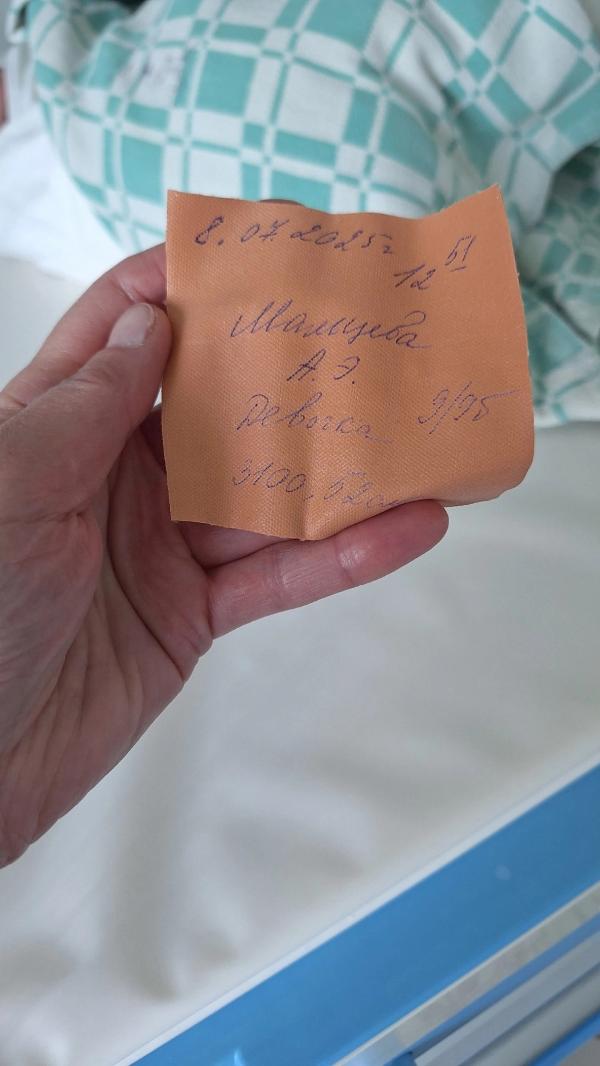 8.07.2025г
12 51
Мальцева
А.Э.
Девочка 9/9б
3100, 52см